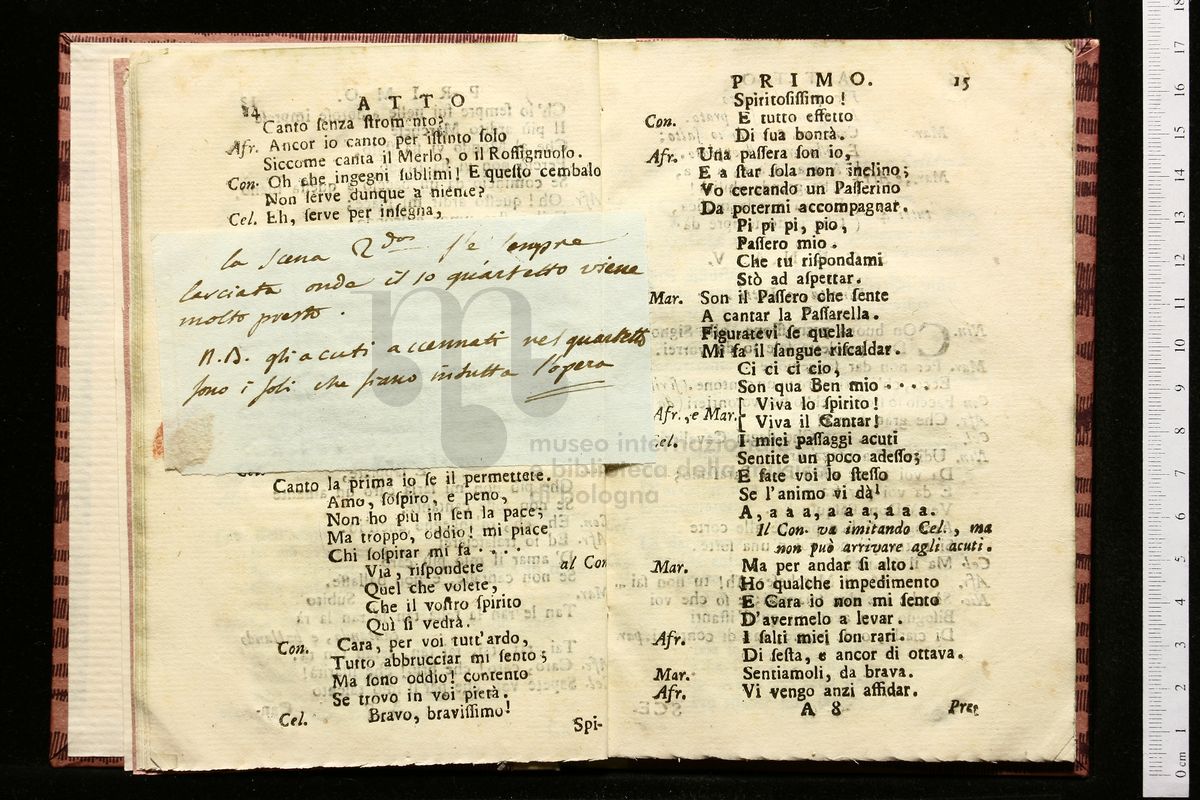 14 ATTO
Canto ſenza ſtromento?
Afr. Ancor io canto per iſtinto ſolo
Siccome canta il Merlo, o il Roſſignuolo.
Con. Oh che ingegni ſublimi! E queſto cembalo
Non ſerve dunque a niente?
Cel. Eh, ſerve per inſegna,
la scena 2da s'è sempre
lasciata onde il so quartetto viene
molto presto.
N.B. gli acuti accennati nel quartetto
sono i soli che siano in tutta l'opera
Canto la prima io ſe il permettete.
Amo, ſoſpiro, e peno,
Non ho più in ſen la pace;
Ma troppo, oddio! mi piace
Chi ſoſpirar mi fa . . . .
Via, riſpondete al Con
Quel che volete,
Che il voſtro ſpirito
Quì ſi vedrà.
Con. Cara, per voi tutt'ardo,
Tutto abbrucciar mi ſento;
Ma ſono oddio! contento
Se trovo in voi pietà.
Cel. Bravo, braviſſimo!
Spi-
PRIMO. 15
Spiritoſiſſimo!
Con. E tutto effetto
Di ſua bontà.
Afr. Una paſſera ſon io,
E a ſtar ſola non inclino;
Vo cercando un Paſſerino
Da potermi accompagnar.
Pi pi pi, pio,
Paſſero mio.
Che tu riſpondami
Stò ad aſpettar.
Mar. Son il Paſſero che ſente
A cantar la Paſſarella.
Figuratevi ſe quella
Mi fa il ſangue riſcaldar.
Ci ci ci cio,
Son qua Ben mio . . . .
Afr., e Mar. { Viva lo ſpirito!
Viva il Cantar!
el. I miei paſſaggi acuti
Sentite un poco adeſſo;
E fate voi lo ſteſſo
Se l'animo vi dà!
A, a a a, a a a, a a a.
Il Con. va imitando Cel., ma
non può arrivare agli acuti.
Mar. Ma per andar sì alto
Ho qualche impedimento
E Cara io non mi ſento
D'avermelo a levar.
Afr. I ſalti miei ſon rari.
Di ſeſta, e ancor di ottava.
Mar. Sentiamoli, da brava.
Afr. Vi vengo anzi affidar.
A 8 Pre
museo internazionale
e biblioteca della musica
di Bologna